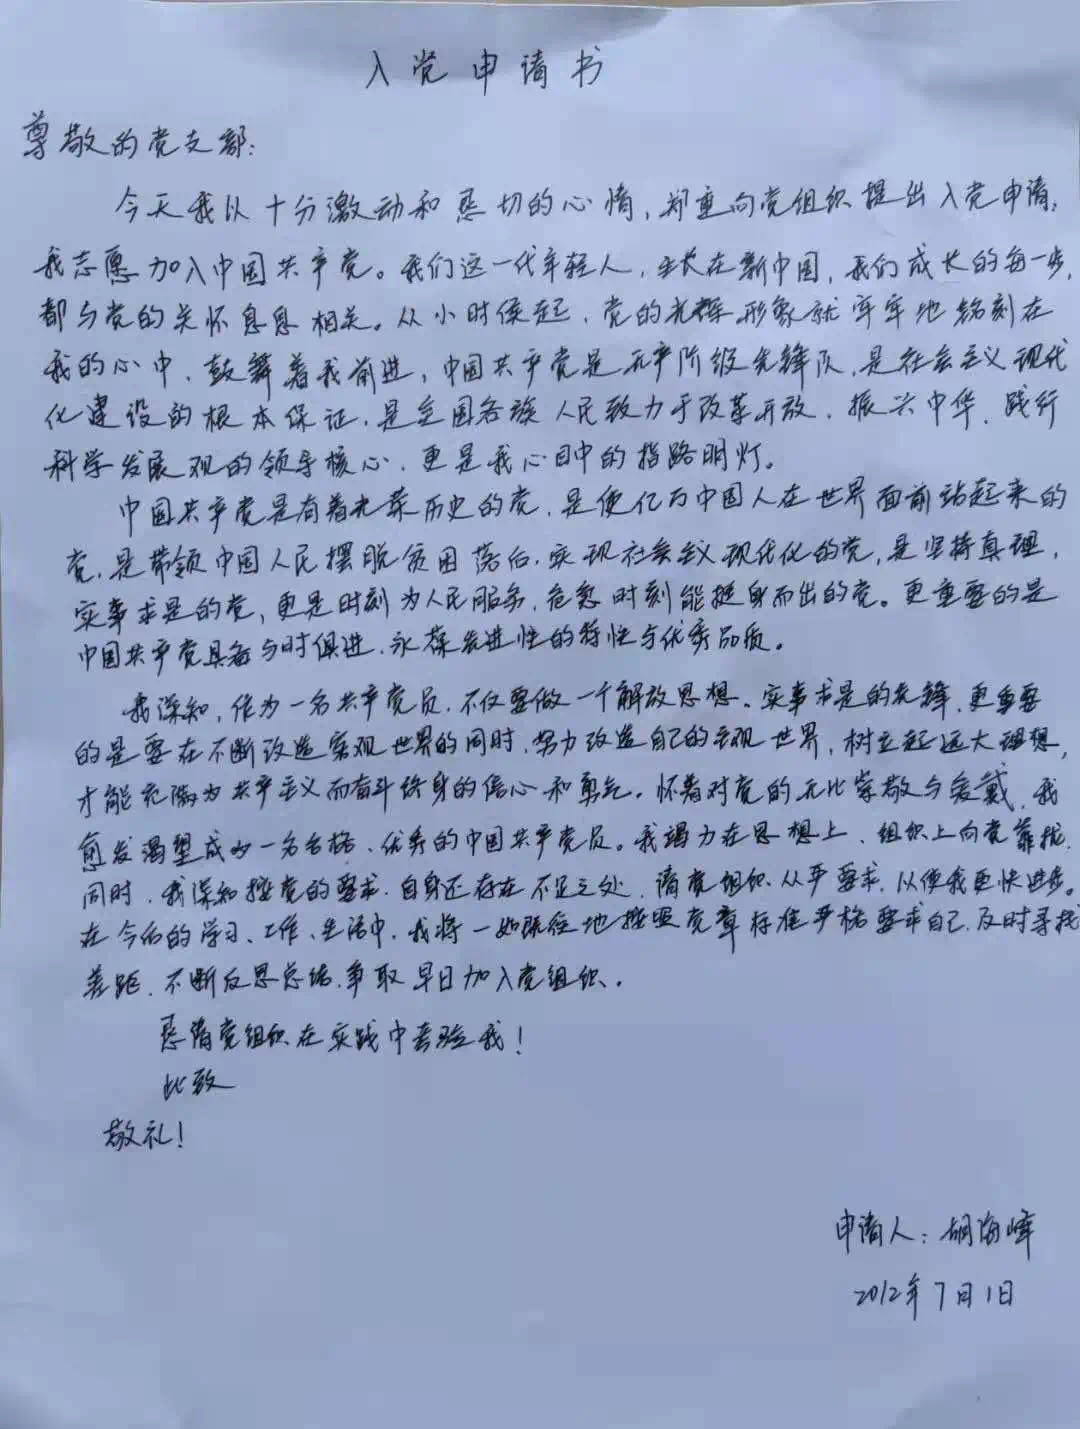 入党申请书
尊敬的党支部:
今天我以十分激动和恳切的心情,郑重向党组织提出入党申请,
我志愿加入中国共产党。我们这一代年轻人,生长在新中国,我们成长的每一步,
都与党的关怀息息相关。从小时侯起,党的光辉形象就牢牢地铭刻在
我的心中,鼓舞着我前进,中国共产党是无产阶级先锋队,是社会主义现代
化建设的根本保证,是全国各族人民致力于改革开放、振兴中华、践行
科学发展观的领导核心,更是我心目中的指路明灯。
中国共产党是有着光荣历史的党,是使亿万中国人在世界面前站起来的
党,是带领中国人民摆脱贫困落后,实现社会主义现代化的党,是坚持真理,
实事求是的党,更是时刻为人民服务,危急时刻能挺身而出的党。更重要的是
中国共产党具备与时俱进,永葆先进性的特性与优秀品质。
我深知,作为一名共产党员,不仅要做一个解放思想、实事求是的先锋,更重要
的是要在不断改造客观世界的同时,努力改造自己的主观世界,树立起远大理想,
才能充满为共产主义而奋斗终身的信心和勇气。怀着对党的无比崇敬与爱戴,我
愈发渴望成为一名合格、优秀的中国共产党员。我竭力在思想上、组织上向党靠拢,
同时,我深知按党的要求,自身还存在不足之处,请党组织从严要求,以便我更快进步。
在今后的学习、工作、生活中,我将一如既往地按照党章标准严格要求自己,及时寻找
差距,不断反思总结,争取早日加入党组织。
恳请党组织在实践中考验我!
此致
敬礼!
申请人:胡海峰
2012年7月1日